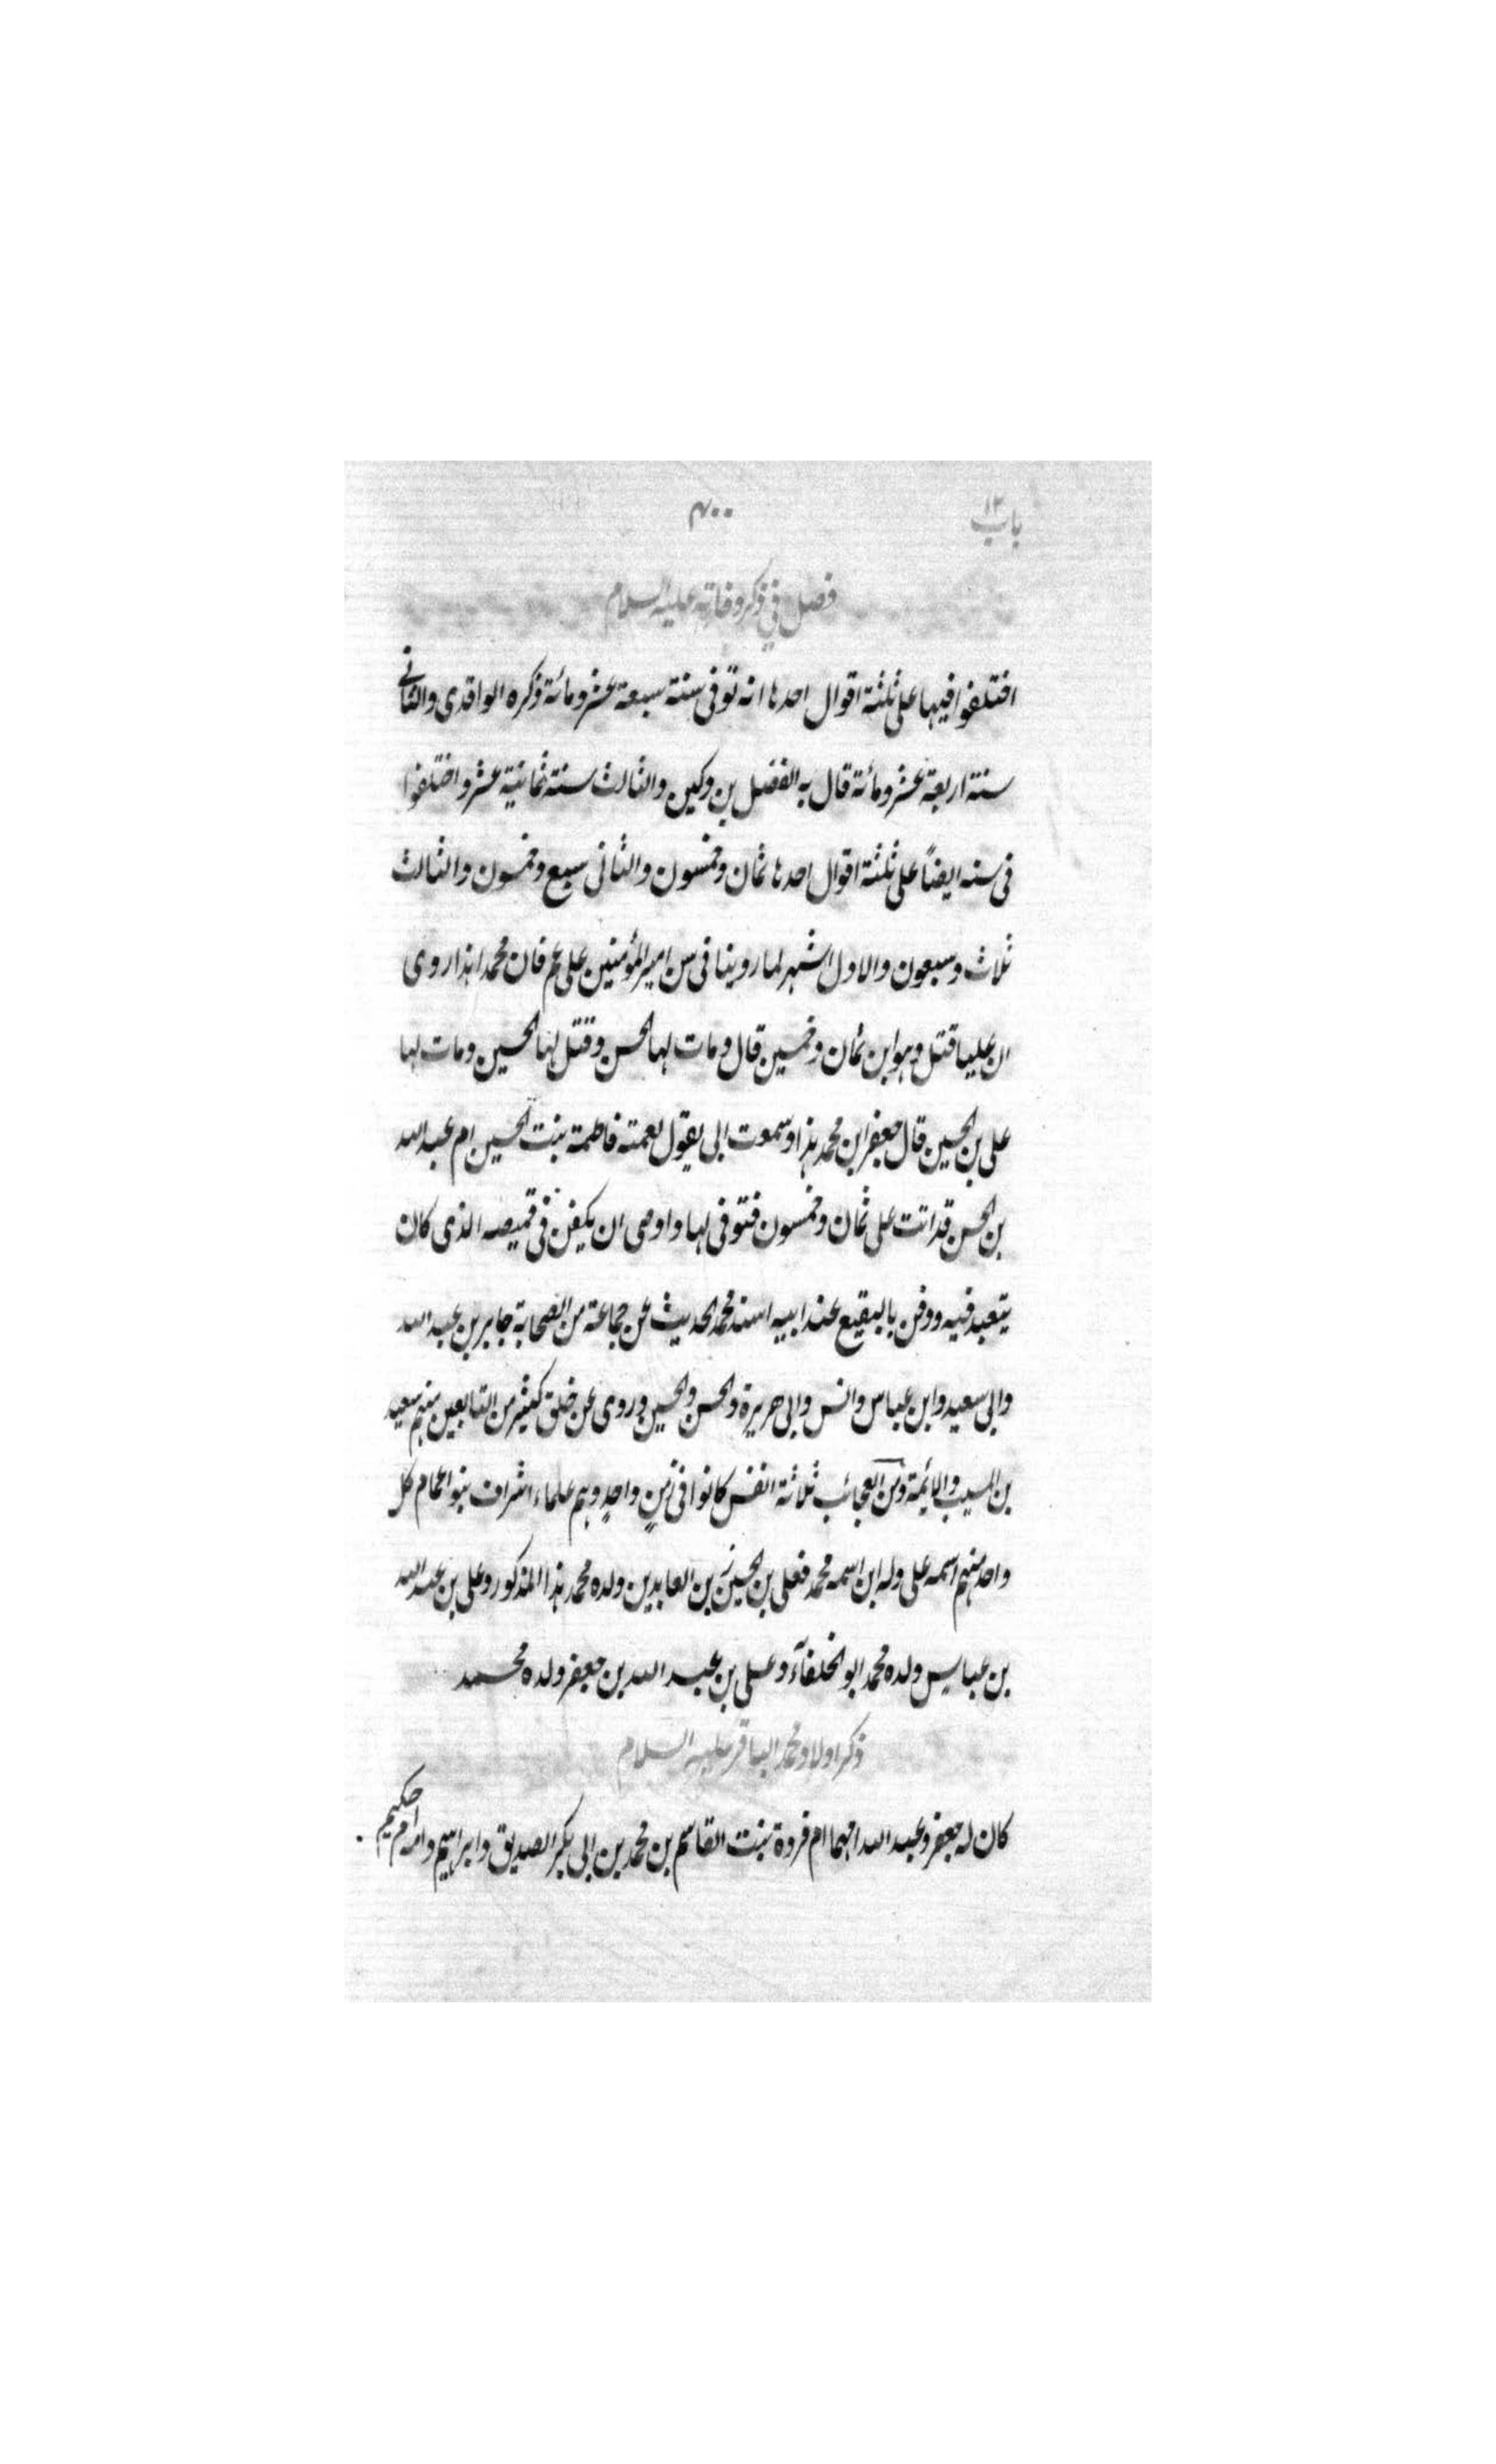 باب ١٣
٤٠٠
فصل في ذكر وفاته عليه السلام
اختلفوا فيها على ثلثة اقوال احدها انه توفى سنة سبعة عشر ومائة ذكره الواقدى والثانى
سنة اربعة عشر ومائة قال به الفضل بن دكين والثالث سنة ثمانية عشر واختلفوا
فى سنه ايضاً على ثلثة اقوال احدها ثمان وخمسون والثانى سبع وخمسون والثالث
ثلاث وسبعون والاول اشهر لما روينا فى سن امير المؤمنين على عم فان محمدا هذا روى
ان عليا قتل وهو ابن ثمان وخمسين قال ومات لها الحسن وقتل لها الحسين ومات لها
على بن الحسين قال جعفر ابن محمد هذا وسمعت ابى يقول لعمته فاطمة بنت الحسين ام عبد الله
بن الحسن قد اتت على ثمان وخمسون فتوفى لها واوصى ان يكفن فى قميصه الذى كان
يتعبد فيه ودفن بالبقيع عند ابيه اسند محمد الحديث عن جماعة من الصحابة جابر بن عبد الله
وابى سعيد وابن عباس وانس وابى هريرة والحسن والحسين وروى عن خلق كثير من التابعين منهم سعيد
بن المسيب والايمة ومن العجائب ثلاثة انفس كانوا فى زمن واحدٍ وهم علماء اشراف بنو اعمام كل
واحد منهم اسمه على وله ابن اسمه محمد فعلى بن الحسين زين العابدين ولده محمد هذا المذكور وعلى بن عبد الله
بن عباس ولده محمد ابو الخلفآء وعلى بن عبد الله بن جعفر ولده محمد
ذكر اولاد محمد الباقر عليه السلام
كان له جعفر وعبد الله امهما ام فروة بنت القاسم بن محمد بن ابى بكر الصديق وابراهيم وامه ام حكيم